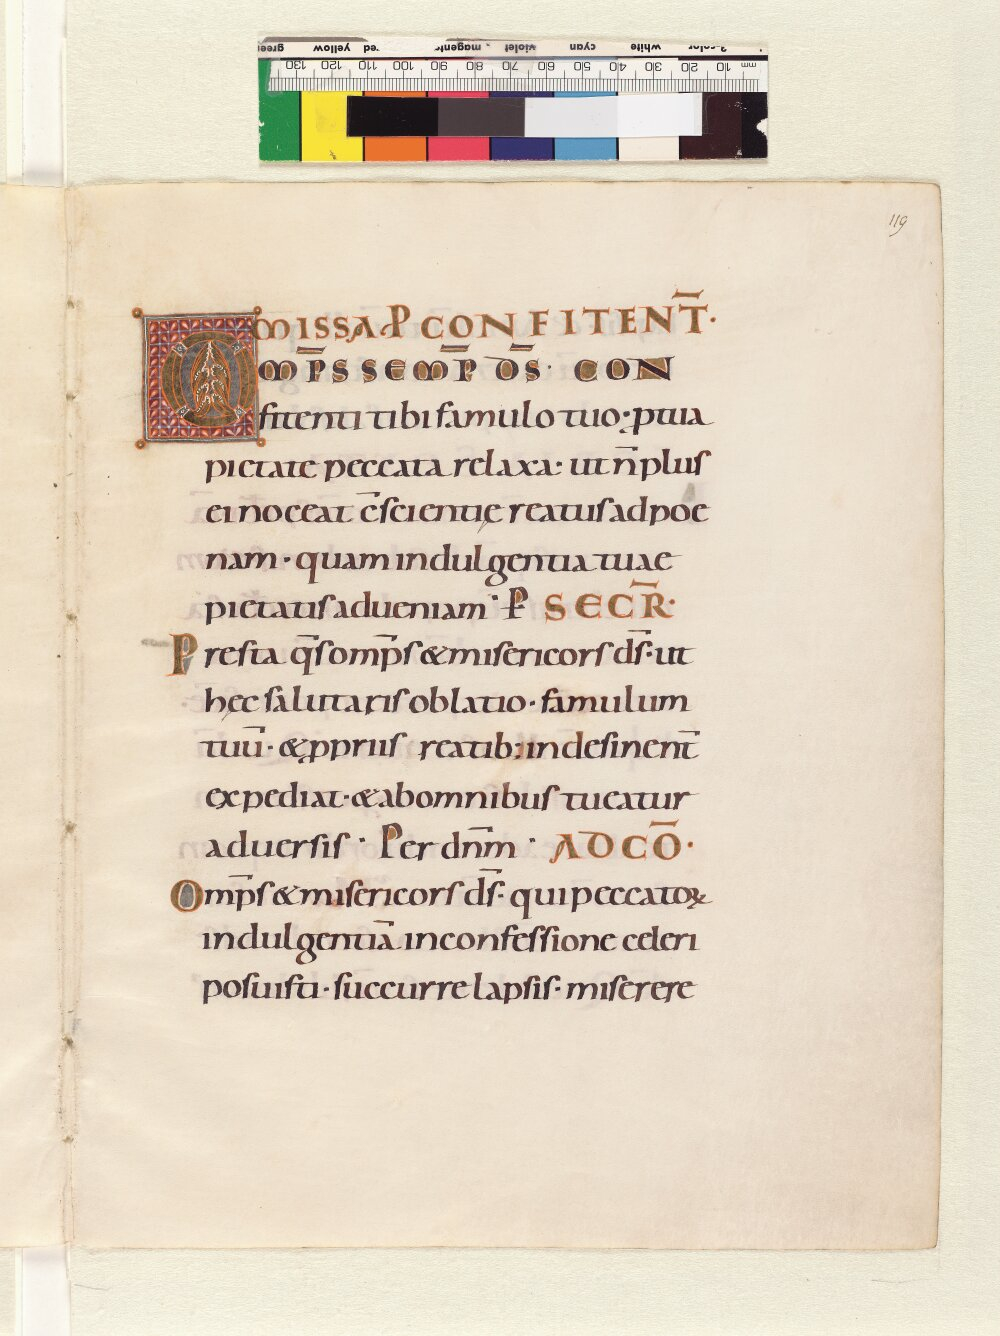 119
MISSA P CONFITENT̄·
OMP̄S SEMP̄ D̄S· CON
fitenti tibi famulo tuo· ꝓ tua
pietate peccata relaxa· ut n̄ plus
ei noceat c̄scientię reatus ad poe
nam· quam indulgentia tuae
pietatis adueniam· P̶ SECR̄·
Presta q̄s omp̄s & misericors d̄s· ut
hęc salutaris oblatio· famulum
tuū· & ꝓpriis reatib; indesinent̄
expediat· & ab omnibus tueatur
aduersis· Per dn̄m· AD CŌ·
Omp̄s & misericors d̄s· qui peccatoꝝ
indulgentiā in confessione celeri
posuisti· succurre lapsis· miserere